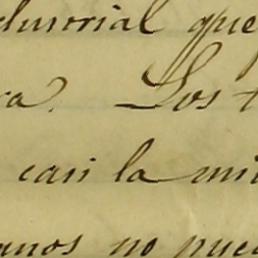 dustrial que
ra. Los t
casi la mi
anos no pued